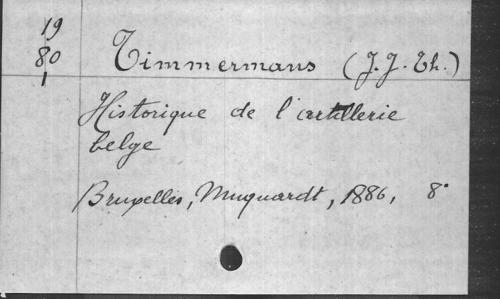 19
80
1
Timmermans (J. J. Th.)
Historique de l'artillerie
belge
Bruxelles, Muquardt, 1886, 8°